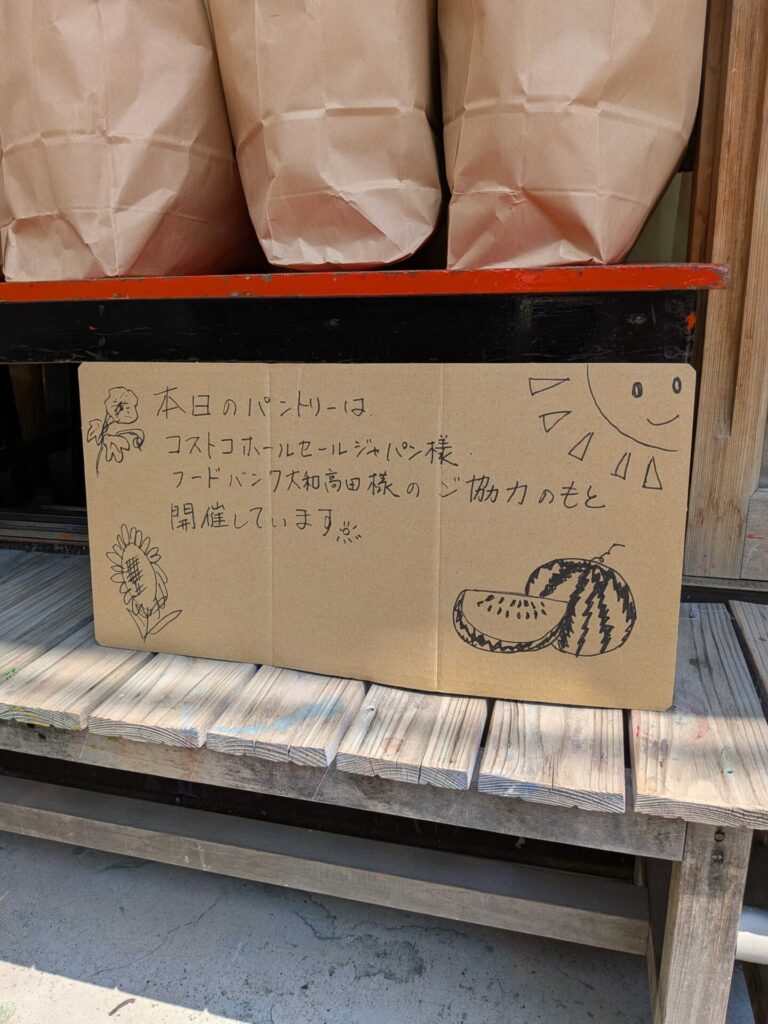 本日のパントリーは
コストコホールセールジャパン様
フードバンク大和高田様のご協力のもと
開催しています